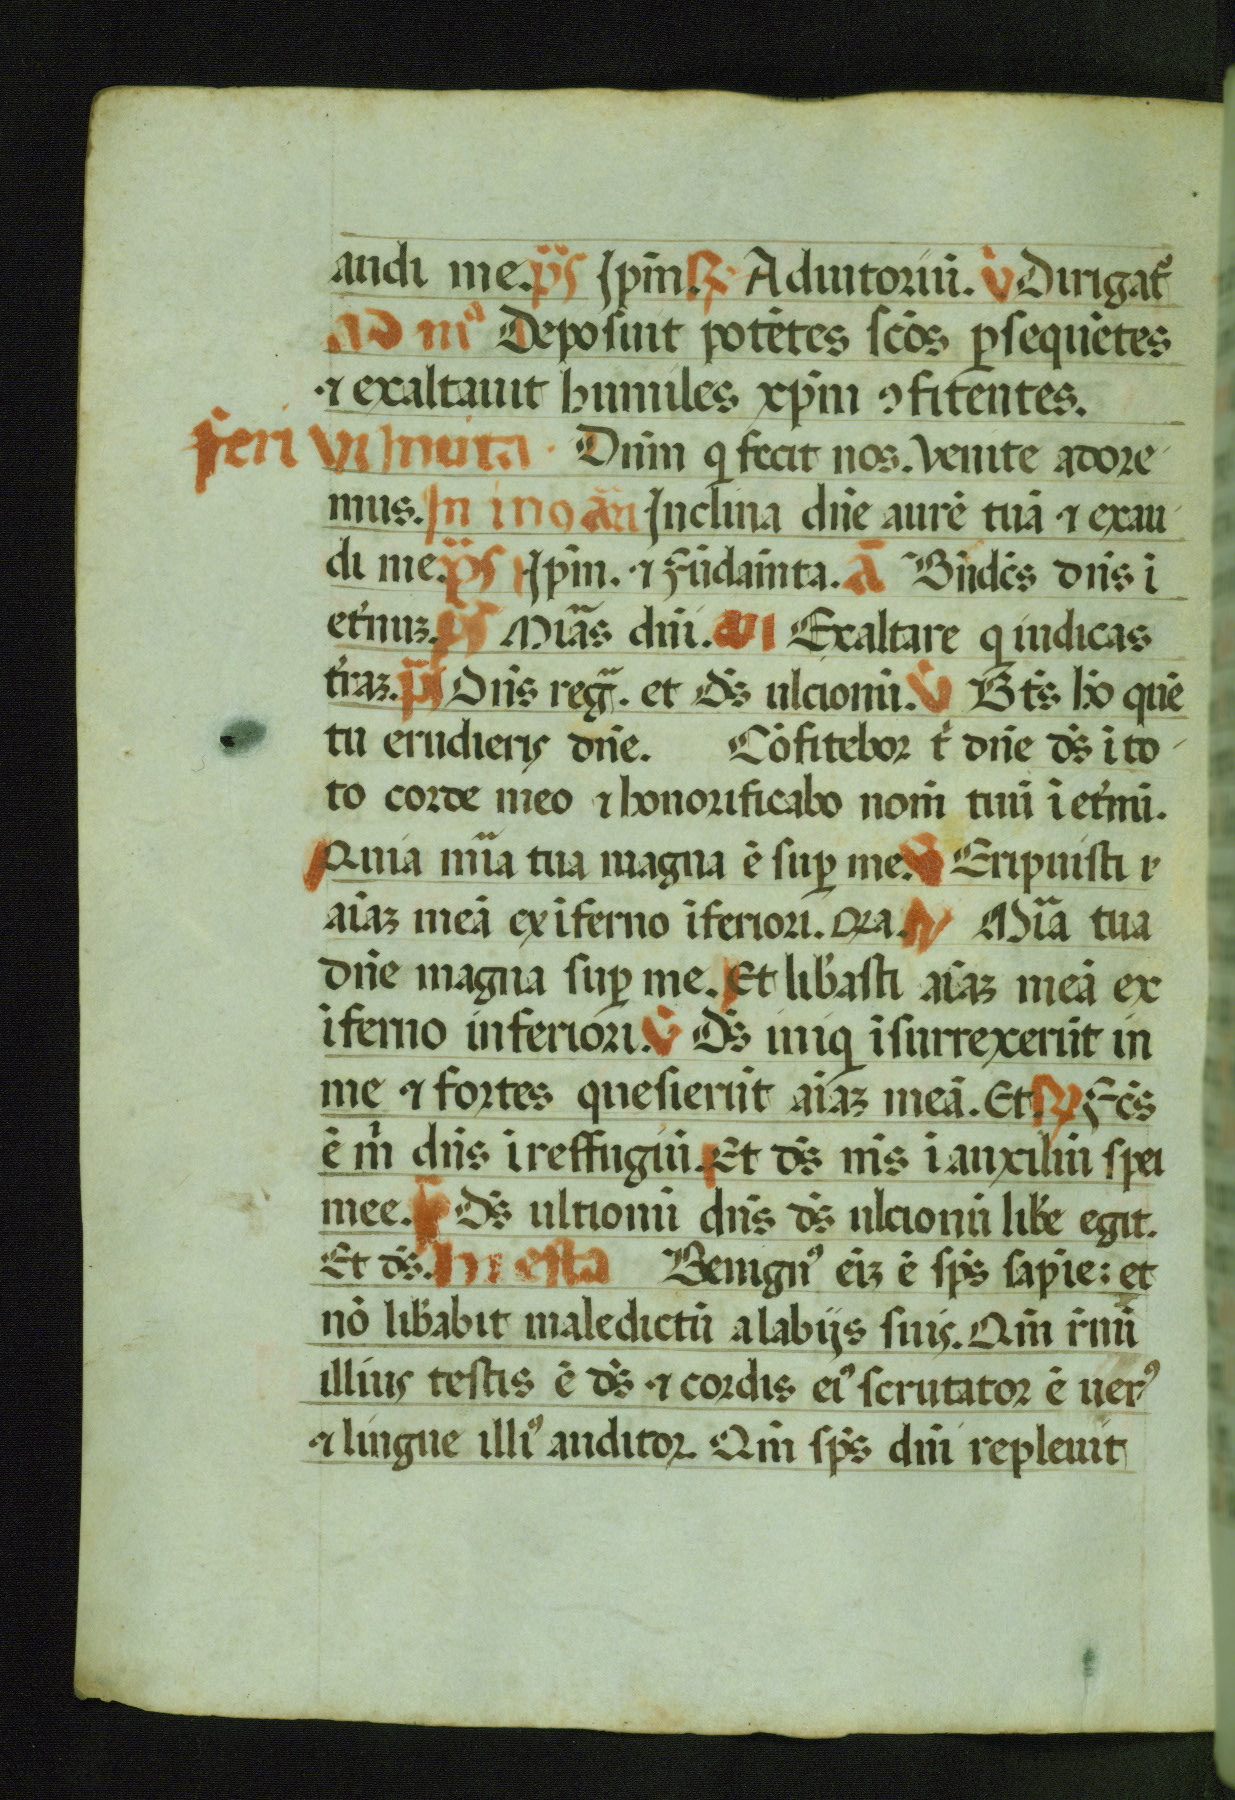 andi me. p̄s Ip̄m. R̄ Adiutoriū. v̄ Dirigat᷑
ad mꝰ Deposuit potētes sc̄os ꝑsequētes
⁊ exaltauit humiles xp̄m ꝯfitentes.
feri vi Inuita. Dn̄m q̄ fecit nos. Venite adore
mus. In i no an̄ Inclina dn̄e aurē tuā ⁊ exau
di me. p̄s Ip̄m. ⁊ Fūdam̄ta. ā Bn̄dc̄s dn̄s ī
et̄nuꝫ. p̄s Mīas dn̄i. an Exaltare q̄ iudicas
t̄raꝫ. p̄s Dn̄s reḡ. et d̄s ulcionū. v̄ Bt̄s ho quē
tu erudieris dn̄e. Cōfitebor t̄ dn̄e d̄s ī to
to corde meo ⁊ honorificabo nom̄ tuū ī et̄nū.
Quia mīa tua magna ē suꝑ me. v̄ Eripuisti
aīaꝫ meā ex īferno īferiori. ora. Mīa tua
dn̄e magna suꝑ me. Et lib̄asti aīaꝫ meā ex
īferno inferiori. v̄ D̄s iniq̄ īsurrexerūt in
me ⁊ fortes quesierūt aīaꝫ meā. Et. R̄ Fc̄s
ē m̄ dn̄s ī reffugiū. Et d̄s m̄s ī auxiliū spei
mee. D̄s ultionū dn̄s d̄s ulcionū lib̄e egit.
Et d̄s. Benignꝰ eīꝫ ē sp̄s sapīe: et
nō lib̄abit maledictū a labijs suis. Qm̄ r̄nū
illius testis ē d̄s ⁊ cordis eiꝰ scrutator ē uerꝰ
⁊ lingue illiꝰ auditor. Qm̄ sp̄s dn̄i repleuit